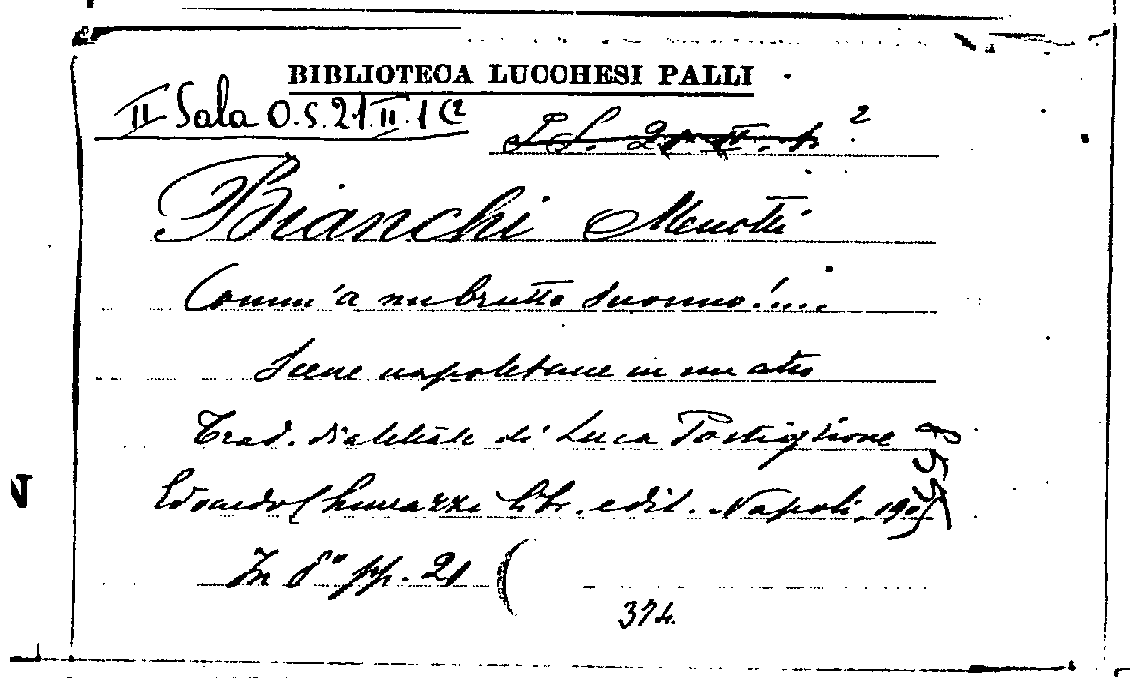 BIBLIOTECA LUCCHESI PALLI
II Sala O.S. 21 II. 1 (2
2
Bianchi Menotti
Comm'a nu brutto suonno!...
Scene napoletane in un atto
Trad. dialettale di Luca Postiglione
Edoardo Chiurazzi libr. edit. Napoli, 1905
In 8° pp. 21 (
374.
N